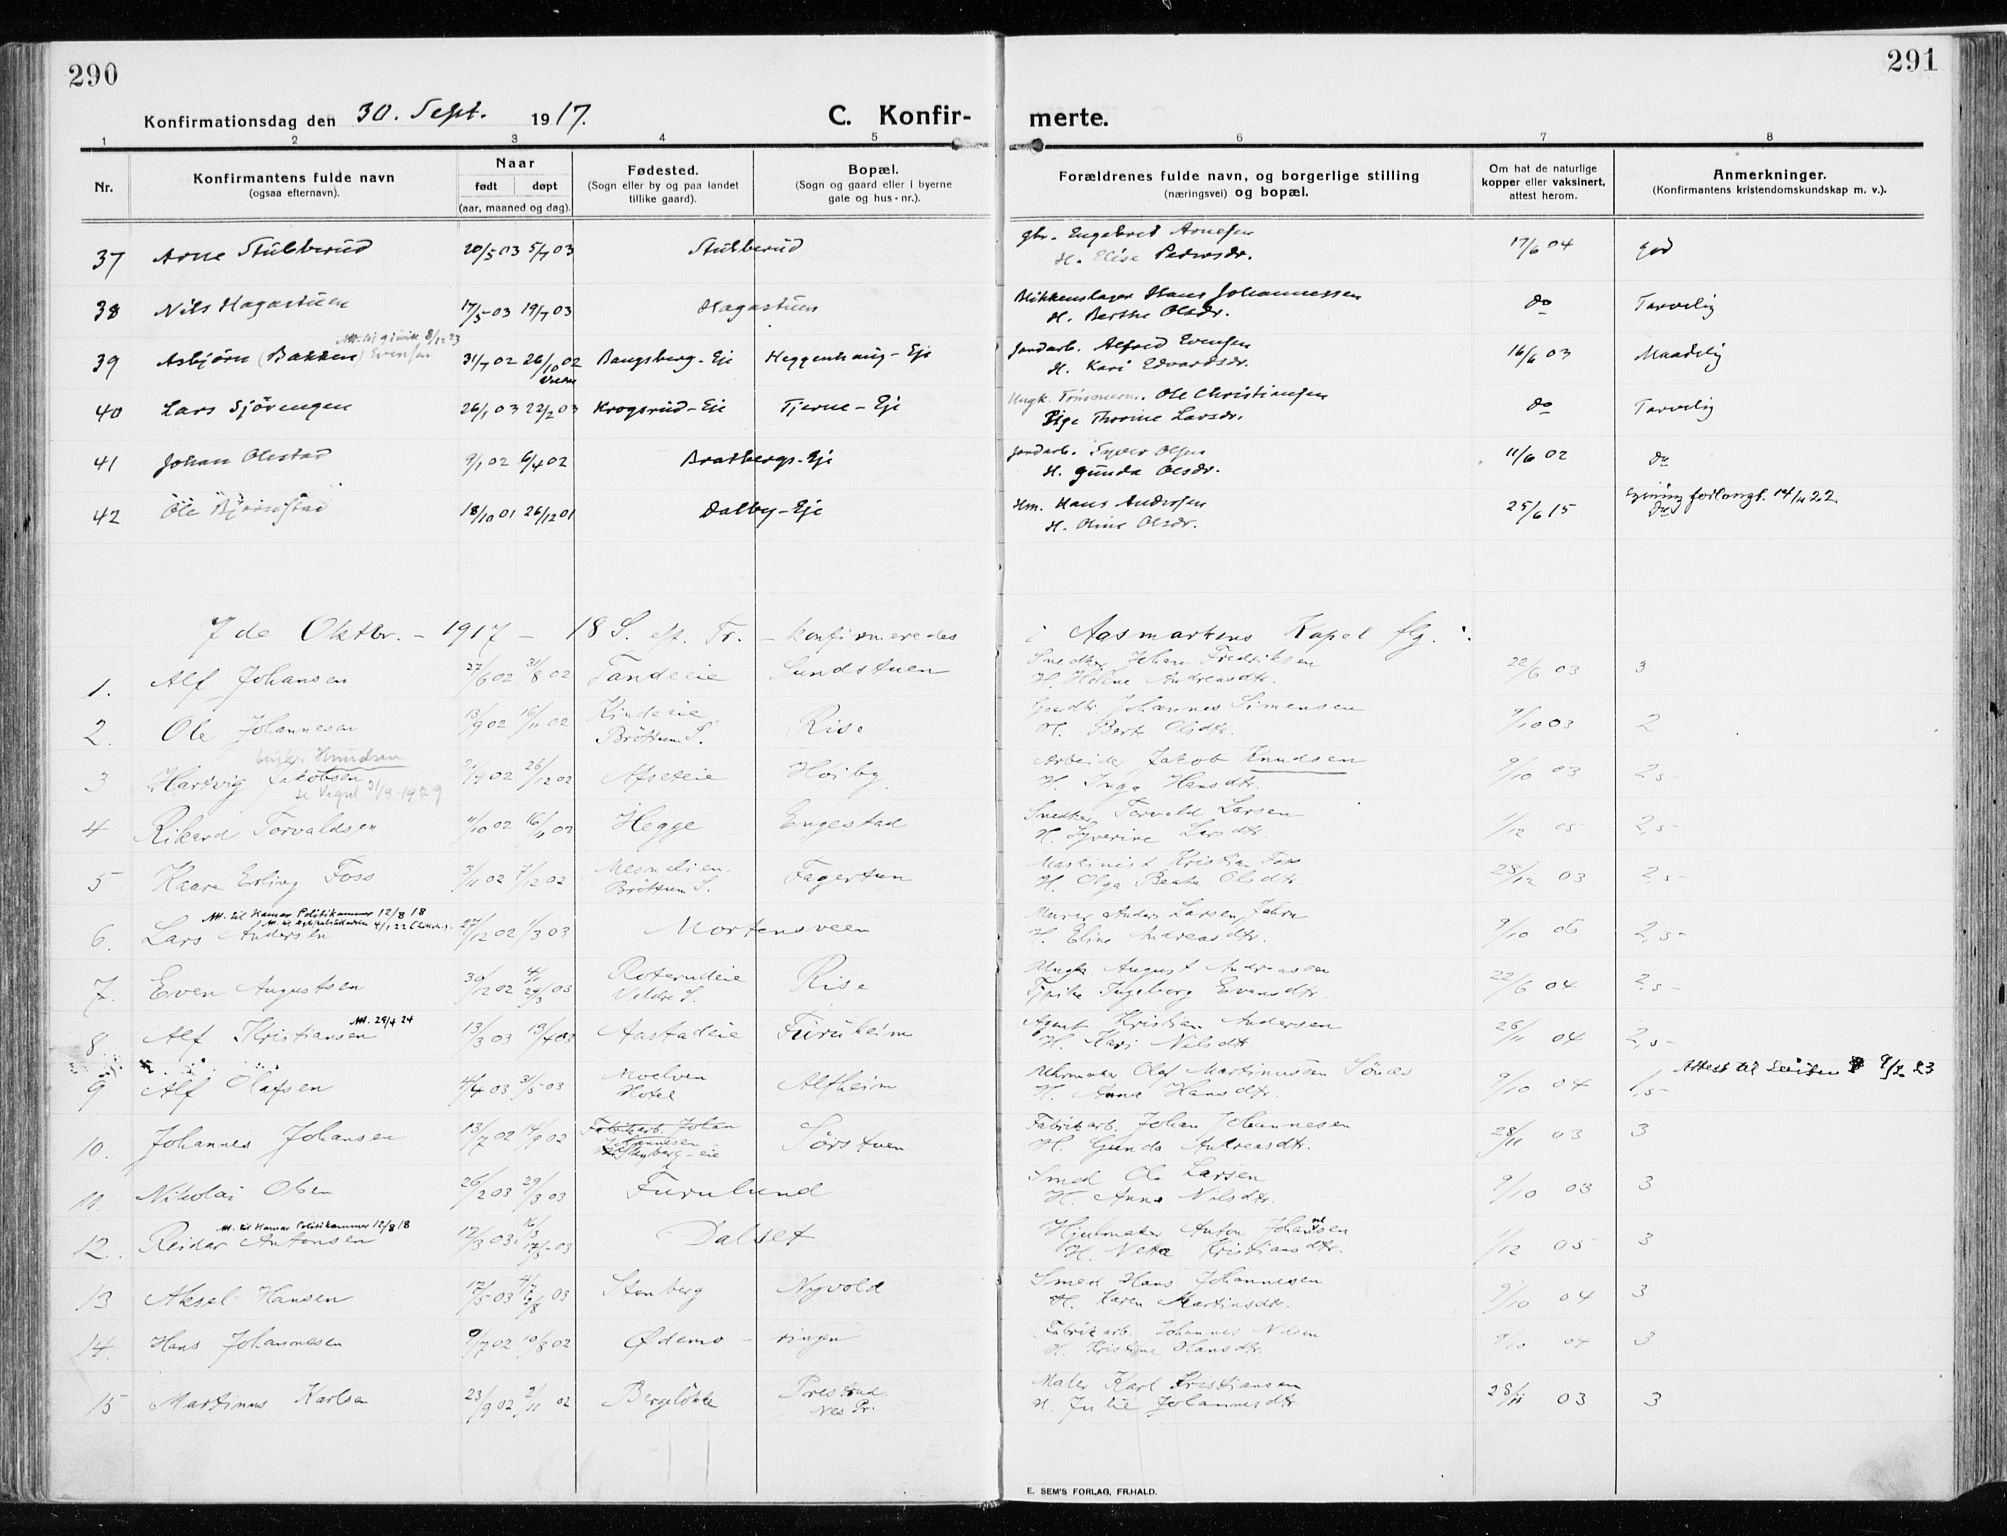 290
291
Konfirmationsdag den 30. Sept. 1917.
C. Konfir-
merte.
1 2 3 4 5 6 7 8
Nr.
Konfirmantens fulde navn
(ogsaa efternavn).
Naar
født døpt
(aar, maaned og dag).
Fødested.
(Sogn eller by og paa landet
tillike gaard).
Bopæl.
(Sogn og gaard eller i byerne
gate og hus-nr.).
Forældrenes fulde navn, og borgerlige stilling
(næringsvei) og bopæl.
Om hat de naturlige
kopper eller vaksinert,
attest herom.
Anmerkninger.
(Konfirmantens kristendomskundskap m. v.).
37 Arne Stubberud 20/5 03 5/7 03 Stubberud
Gbr. Engebret Arnesen
H. Elise Pedersdr.
17/6 04 God
38 Nils Hagastuen 17/5 03 19/7 03 Hagastuen
Blikkenslager Hans Johannessen
H. Berthe Olsdr.
do Tarvelig
39 Asbjørn (Bakken) Evensen 31/7 02 26/10 02 Bangsberg-Eje Heggenhaug-Eje
Jordarb. Alfred Evensen
H. Kari Edvardsdr.
16/6 03 Maadelig
40 Lars Sjøvengen 26/1 03 22/2 03 Krogsrud-Eje Tjerne-Eje
Ungk. Tømmerm. Ole Christiansen
Pige Thorine Larsdr.
do Tarvelig
41 Johan Olestad 9/1 02 6/4 02 Bratbergs-Eje
Jordarb. Syver Olsen
H. Gunda Olsdr.
11/6 02 do
42 Ole Bjørnstad 18/10 01 26/12 01 Dalby-Eje
Hm. Hans Andersen
H. Oline Olsdr.
25/6 15 do
7de Oktbr. - 1917 - 18 S. eft. Tr. - konfirmeredes i Aasmarkens Kapel flg.:
1. Alf Johansen 27/6 02 31/8 02 Tandeeie Sundstuen
Snedker Johan Fredriksen
H. Helene Andreasdtr.
22/6 03 3
2. Ole Johannesen 13/9 02 16/11 02 Kindeeie Brøttum S. Rise
Johannes Simensen
H. Berte Olsdtr.
9/10 03 2
bruker Knudsen
3 Hartvig Jakobsen 26/12 02 Høiby
Arbeider Jakob Knudsen
H. Inga Hansdtr.
9/10 03 2,5
4 Rikard Torvaldsen 11/10 02 16/11 02 Hegge Engestad
Snedker Torvald Larsen
H. Syverine Larsdtr.
1/12 05 2,5
5 Kaare Erling Foss 3/11 02 7/12 02 Mesnalien Brøttum S. Fagertun
Maskinist Kristian Foss
H. Olga Beate Olsdtr.
28/12 03 2,5
Att. til Hamar Politikammer 12/8 18
6. Lars Andersen 27/12 02 1/3 03 Mortensveen
Murer Anders Larsen
H. Eline Andreasdtr.
9/10 05 2,5
7. Even Augustsen 30/12 02 29/3 03 Roterudeie Veldre S. Rise
Ungk. August Andreassen
Pike Ingeborg Evensdtr.
22/6 04 2,5
Att. 29/4 24
8. Alf Kristiansen 13/3 03 13/4 03 Aastadeie Furuheim
Agent Kristian Andersen
H. Kari Nilsdtr.
26/11 04 2,5
9 Alf Olafsen 4/4 03 31/5 03 Moelven Hotel Alfheim
Uhrmaker Olaf Martinussen
H. Anna Hansdtr.
9/10 04 1,5
10. Johannes Johansen 13/7 02 14/9 02 Fabrikarb. Johan Johannesen Sørstuen
Fabrikarb. Johan Johannesen
H. Gunda Andreasdtr.
28/11 03 3
11. Nikolai Olsen 26/2 03 29/3 03 Furulund
Smed Ole Larsen
H. Anne Nilsdtr.
9/10 03 3
Att. til Hamar Politikammer 12/8 18
12. Reidar Antonsen 12/3 03 17/5 03 Dalset
Hjulmaker Anton Johansen
H. Netta Kristiansdtr.
1/12 05 3
13 Aksel Hansen 17/5 03 Stenberg Nyvold
Smed Hans Johannesen
H. Karen Martinsdtr.
9/10 04 3
14. Hans Johannesen 9/7 02 10/8 02 Ødemo-ringen
Fabrikarb. Johannes Nilsen
H. Kristine Hansdtr.
9/10 04 3
15 Martinus Karlsen 23/9 02 2/11 02 Bergeløkke Nes Pr.
Maler Karl Kristiansen
H. Julie Johannesdtr.
28/11 03 3
E. SEM'S FORLAG, FR.HALD.